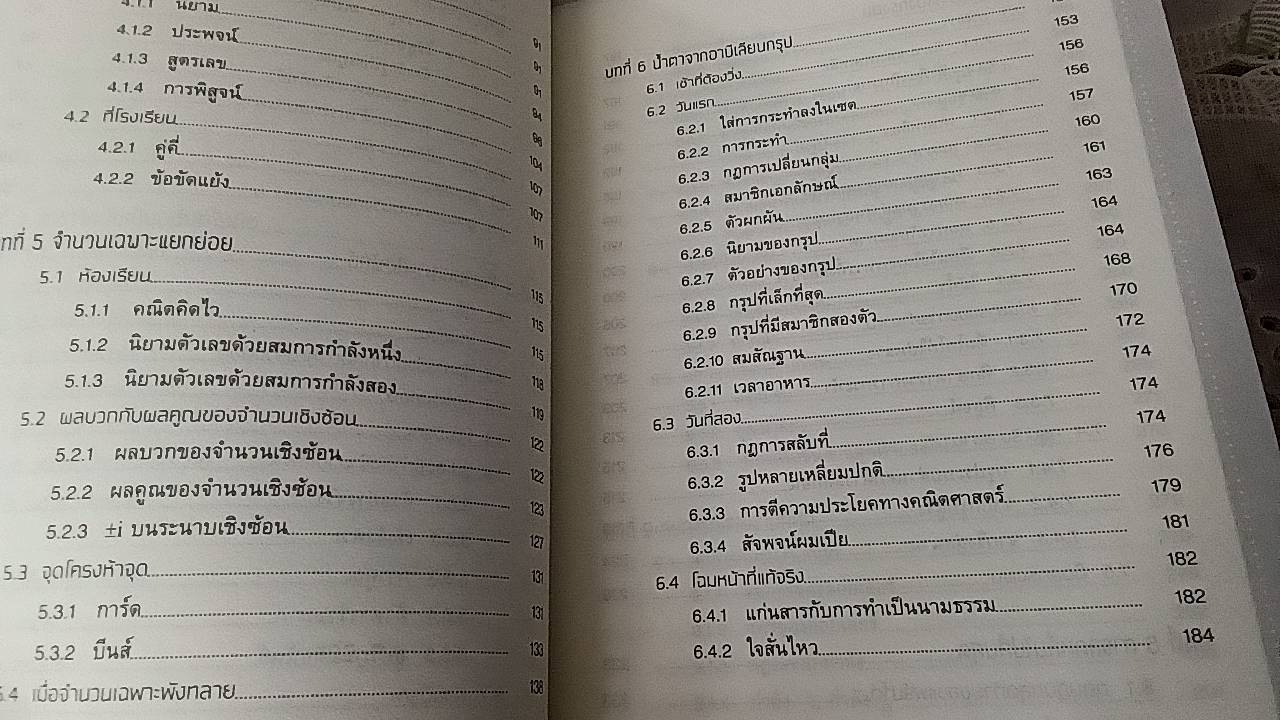 4.1.1 นิยาม 91
4.1.2 ประพจน์ 94
4.1.3 สูตรเลข 96
4.1.4 การพิสูจน์ 104
4.2 ที่โรงเรียน 107
4.2.1 คู่คี่ 107
4.2.2 ข้อขัดแย้ง 111
ทที่ 5 จำนวนเฉพาะแยกย่อย 115
5.1 ห้องเรียน 115
5.1.1 คณิตคิดไว 115
5.1.2 นิยามตัวเลขด้วยสมการกำลังหนึ่ง 118
5.1.3 นิยามตัวเลขด้วยสมการกำลังสอง 119
5.2 ผลบวกกับผลคูณของจำนวนเชิงซ้อน 122
5.2.1 ผลบวกของจำนวนเชิงซ้อน 122
5.2.2 ผลคูณของจำนวนเชิงซ้อน 123
5.2.3 ±i บนระนาบเชิงซ้อน 127
5.3 จุดโครงห้าจุด 131
5.3.1 การ์ด 131
5.3.2 บีนส์ 133
5.4 เมื่อจำนวนเฉพาะพังทลาย 138
บทที่ 6 น้ำตาจากอาบีเลียนกรุป
6.1 เช้าที่ต้องวิ่ง 153
6.2 วันแรก 156
6.2.1 ใส่การกระทำลงในเซต 156
6.2.2 การกระทำ 157
6.2.3 กฎการเปลี่ยนกลุ่ม 160
6.2.4 สมาชิกเอกลักษณ์ 161
6.2.5 ตัวผกผัน 163
6.2.6 นิยามของกรุป 164
6.2.7 ตัวอย่างของกรุป 164
6.2.8 กรุปที่เล็กที่สุด 168
6.2.9 กรุปที่มีสมาชิกสองตัว 170
6.2.10 สมสัณฐาน 172
6.2.11 เวลาอาหาร 174
6.3 วันที่สอง 174
6.3.1 กฎการสลับที่ 174
6.3.2 รูปหลายเหลี่ยมปกติ 176
6.3.3 การตีความประโยคทางคณิตศาสตร์ 179
6.3.4 สัจพจน์ผมเปีย 181
6.4 โฉมหน้าที่แท้จริง 182
6.4.1 แก่นสารกับการทำเป็นนามธรรม 182
6.4.2 ใจสั่นไหว 184